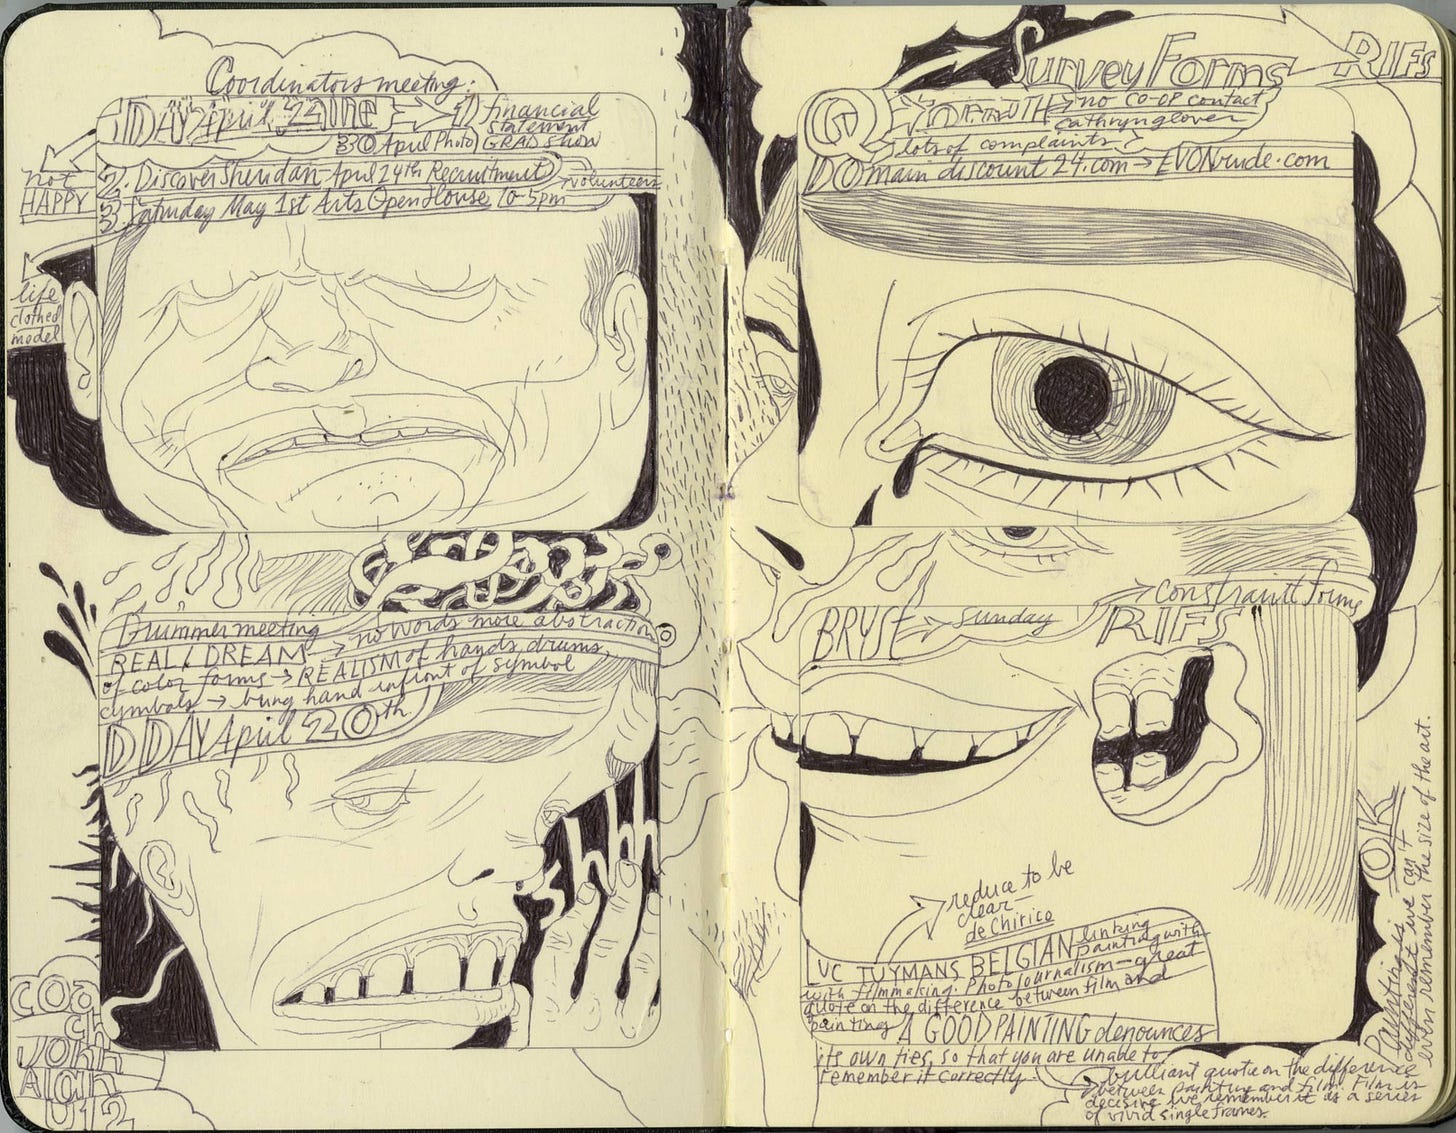 Coordinators meeting:
DDAY April 22
1) financial
statement
GRAD show
30 April Photo
2. Discover Sheridan April 24th Recruitment
volunteers
3. Saturday May 1st Arts Open House 10-5pm
not
HAPPY
life
clothed
model
Drummer meeting
no words more abstraction
REAL & DREAM → REALISM of hands, drums,
of color forms →
symbols → bring hand infront of symbol
DDAY April 20th
shhhh
COA
ch
JOHN
Alan
U12
Survey Forms
RIFs
no CO-OP contact
cathryn glover
lots of complaints?
DOmain discount 24.com → EVONrude.com
BRYCE → sunday
RIFS
→ constraint forms
reduce to be
clear
de Chirico
LUC TUYMANS BELGIAN linking
painting with
with filmmaking. Photojournalism - great
quote on the difference between film and
painting A GOOD PAINTING denounces
its own ties, so that you are unable to
remember it correctly.
brilliant quote on the difference
between painting and film. Film is
decisive we remember it as a series
of vivid single frames.
OK
Painting is
different we can't
even remember the size of the art.